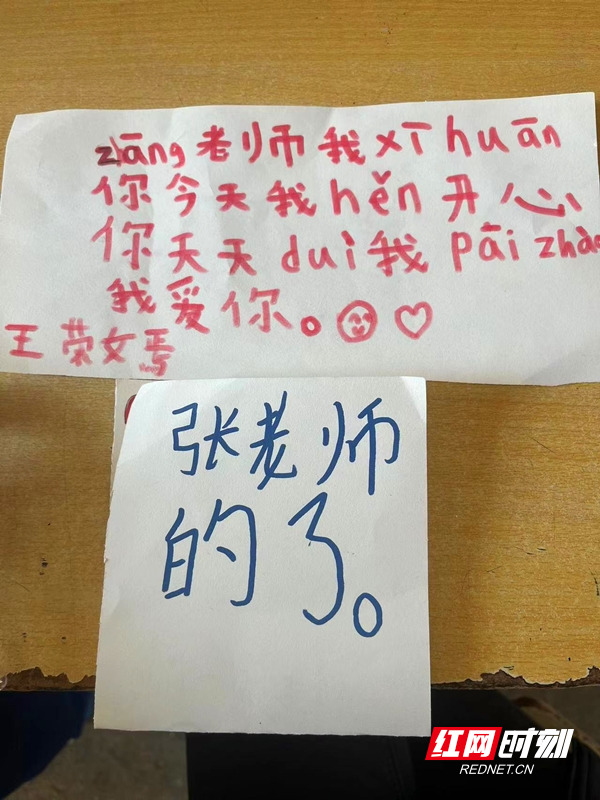 zhāng老师我xǐhuān
你今天我hěn开心
你天天duì我pāizhào
我爱你。
王荣女焉
张老师
的了。
红网时刻
REDNET.CN